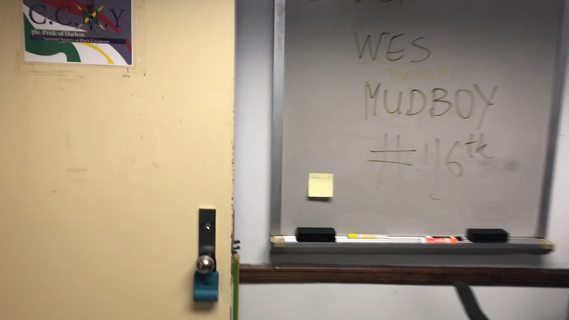 C.C.N.Y
The Pride of Harlem
National Society of Black Engineers
WES
MUDBOY
#116th